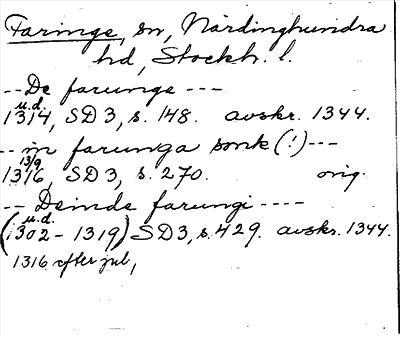 Faringe, sn, Närdinghundra
hd, Stockh. l.
-- De farunge ---
u.d.
1314, SD 3, s. 148. avskr. 1344.
-- in farunga sonk (!) ---
13/9
1316, SD 3, s. 270. orig.
-- Deinde farungi ----
u.d.
(1302 - 1319) SD 3, s. 429. avskr. 1344.
1316 efter jul,